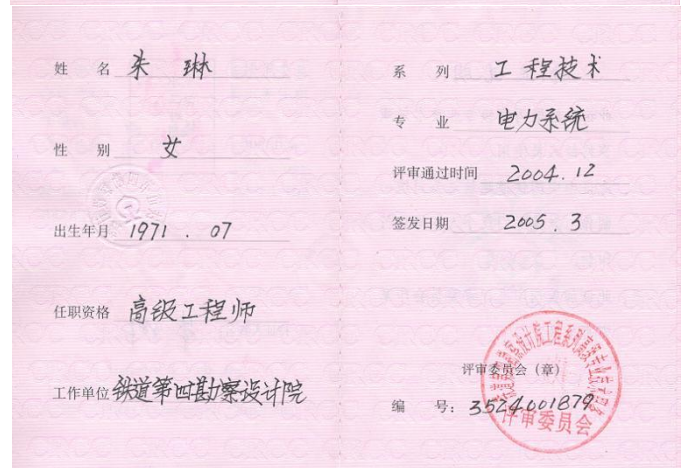 姓 名 朱 琳
性 别 女
出生年月 1971 . 07
任职资格 高级工程师
工作单位 铁道第四勘察设计院
系 列 工程技术
专 业 电力系统
评审通过时间 2004.12
签发日期 2005.3
评审委员会（章）
编 号：3524001879
评审委员会